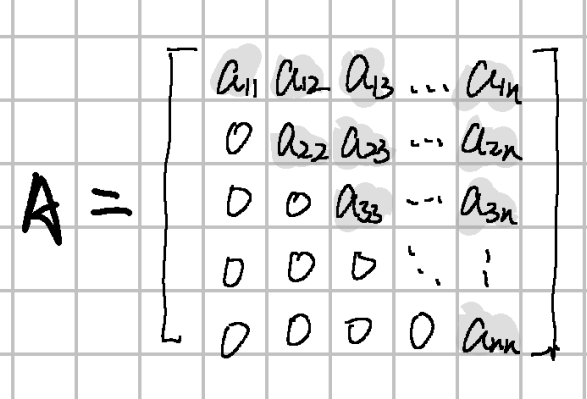 a₁₁ a₁₂ a₁₃ ... a₁ₙ
0 a₂₂ a₂₃ ... a₂ₙ
A = 0 0 a₃₃ ... a₃ₙ
0 0 0 ⋱ ⋮
0 0 0 0 aₙₙ